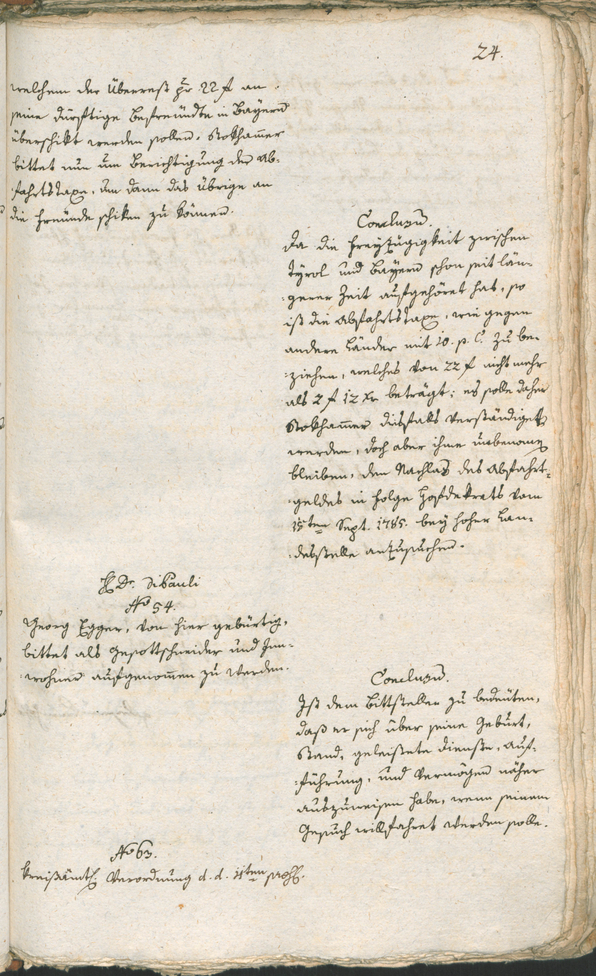 24.
welchem der Überrest pr 22 f an
seine dürftige Befreundte in Bayern
überschikt werden sollen. Stokhamer
bittet nun um Berichtigung der Ab-
fahrtstaxe, um dann das übrige an
die Freunde schiken zu können.
Conclusum.
Da die Freyzügigkeit zwischen
Tyrol und Bayern schon seit län-
gerer Zeit aufgehöret hat, so
ist die Abfahrtstaxe, wie gegen
andere Länder mit 10. p. C. zu be-
ziehen, welches von 22 f nicht mehr
als 2 f 12 Xr beträgt; es solle daher
Stokhamer diesfals verständiget
werden, doch aber ihme unbenomen
bleiben, den Nachlas des Abfahrt-
geldes in Folge Hofdekrets vom
15ten Sept. 1785. bey hoher Lan-
desstelle anzusuchen.
H Dr. DiPauli
No 54.
Georg Egger, von hier gebürtig,
bittet als Inwohner
wohner aufgenommen zu werden.
Conclusum.
Ist dem Bittsteller zu bedeuten,
daß er sich über seine Geburt,
Stand, geleistete Dienste, Auf-
führung, und Vermögen näher
auszuweisen habe, wenn seinem
Gesuch willfahret werden solle.
No 63.
Kreisämtl. Verordnung d. d. 11ten